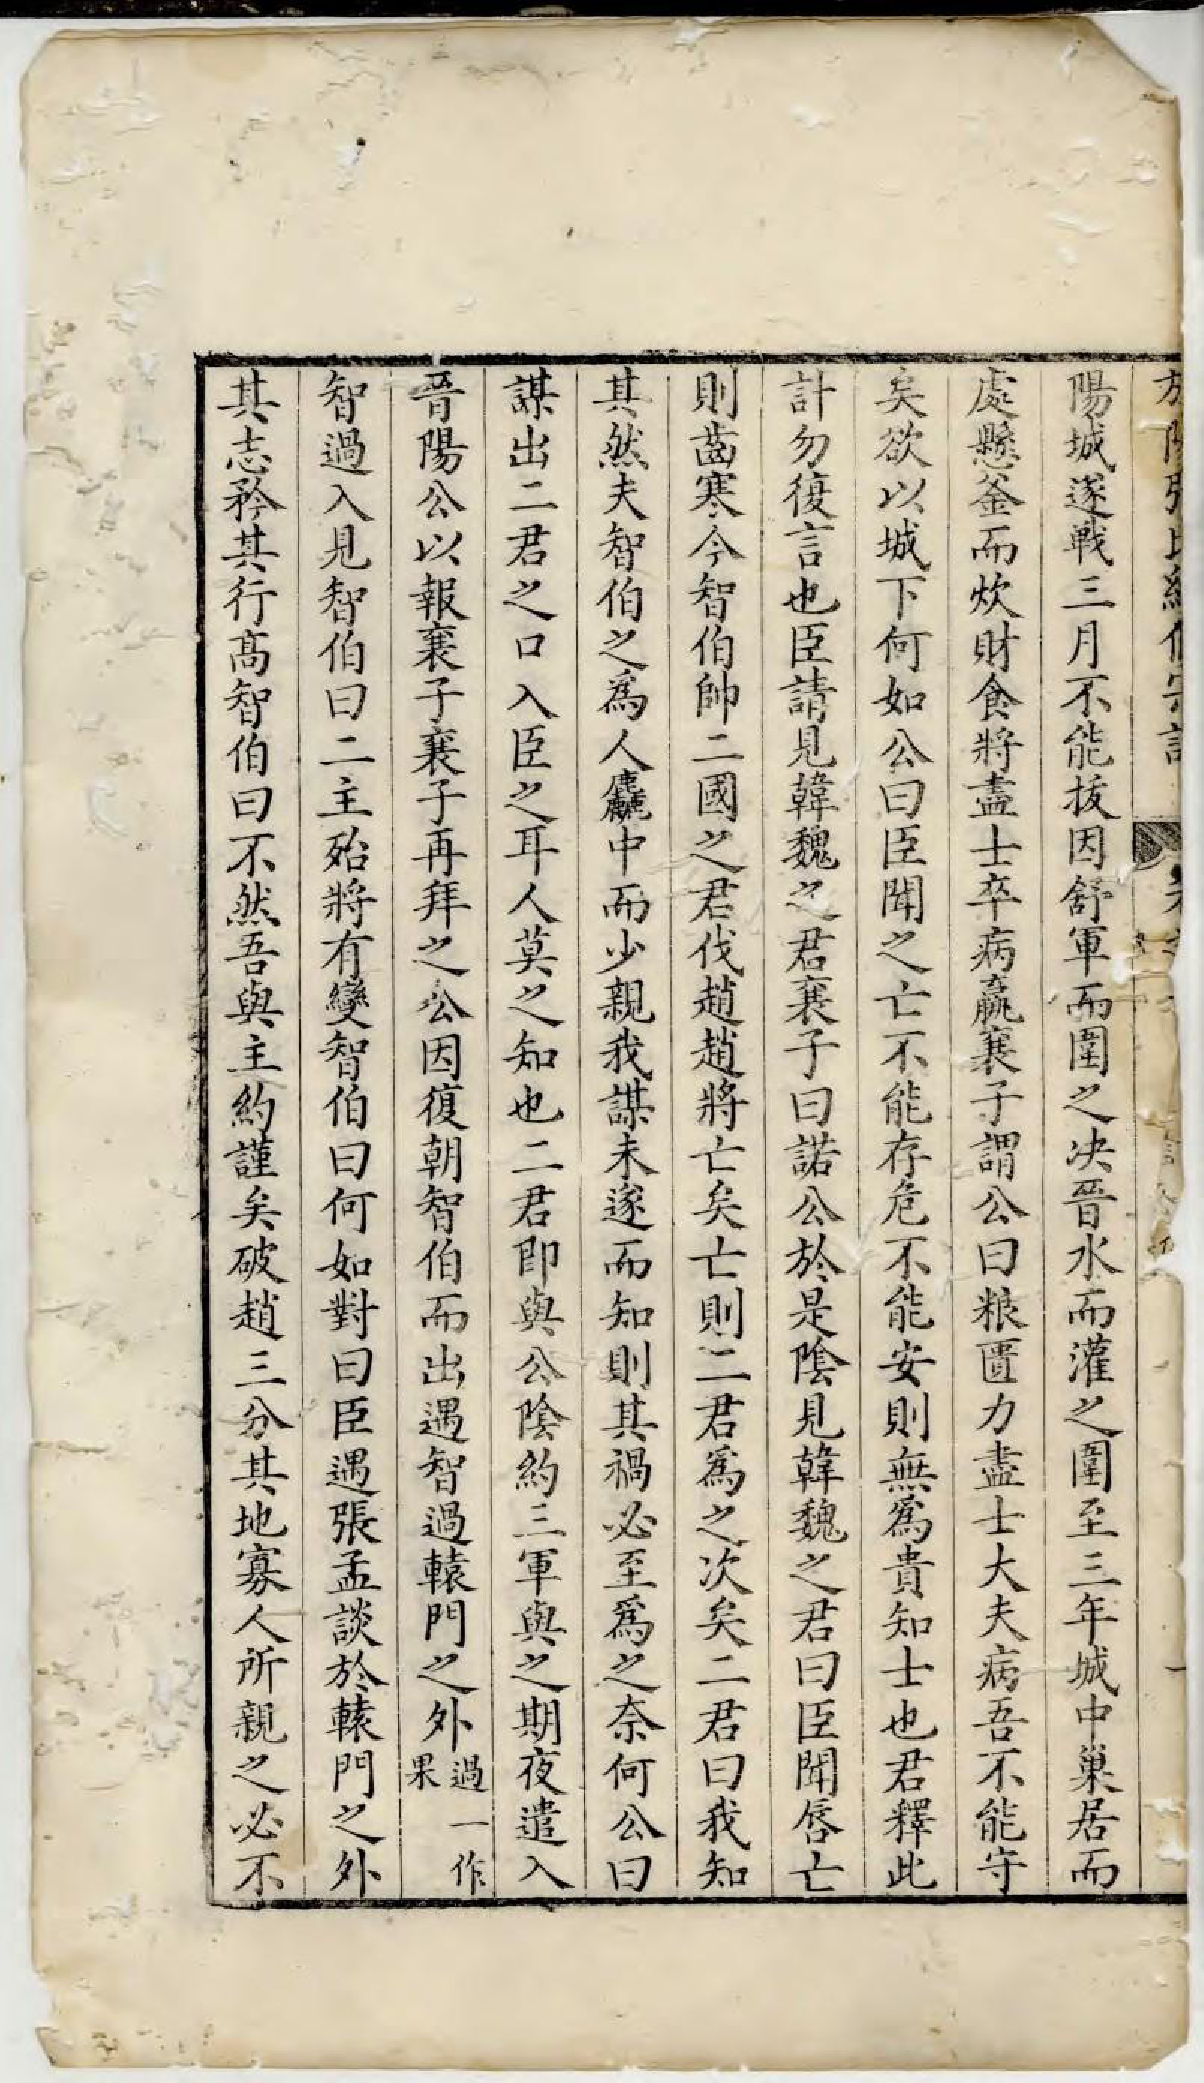 陽城遂戰三月不能拔因舒軍而圍之决晉水而灌之圍至三年城中巢居而
處懸釜而炊財食將盡士卒病羸襄子謂公曰粮匱力盡士大夫病吾不能守
矣欲以城下何如公曰臣聞之亡不能存危不能安則無為貴知士也君釋此
計勿復言也臣請見韓魏之君襄子曰諾公於是陰見韓魏之君曰臣聞唇亡
則齒寒今智伯帥二國之君伐趙趙將亡矣亡則二君為之次矣二君曰我知
其然夫智伯之為人麤中而少親我謀未遂而知則其禍必至為之奈何公曰
謀出二君之口入臣之耳人莫之知也二君即與公陰約三軍與之期夜遣入
晉陽公以報襄子襄子再拜之公因復朝智伯而出遇智過轅門之外過一作果
智過入見智伯曰二主殆將有變智伯曰何如對曰臣遇張孟談於轅門之外
其志矜其行高智伯曰不然吾與主約謹矣破趙三分其地寡人所親之必不